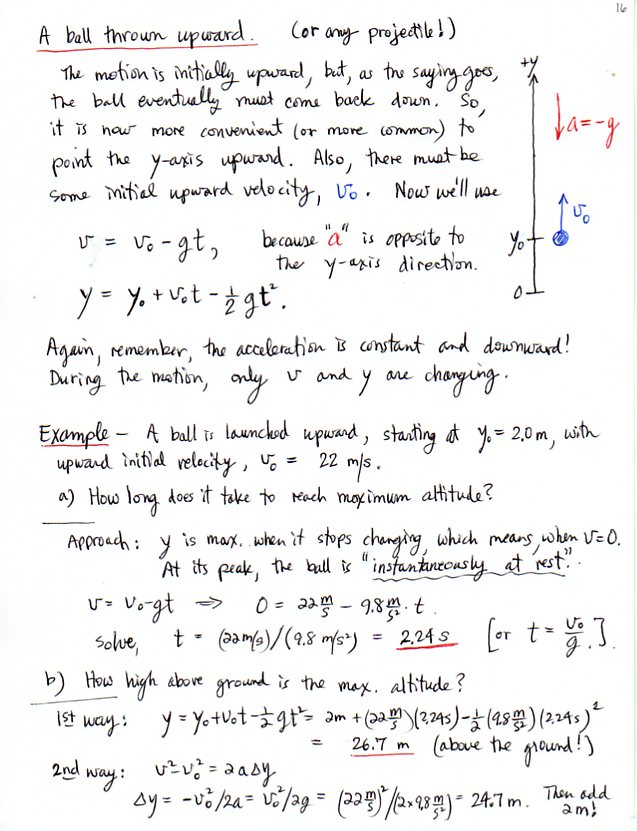 16
A ball thrown upward. (or any projectile!)
The motion is initially upward, but, as the saying goes,
the ball eventually must come back down. So,
it is now more convenient (or more common) to
point the y-axis upward. Also, there must be
some initial upward velocity, v₀. Now we'll use
v = v₀ - gt, because "a" is opposite to
the y-axis direction.
y = y₀ + v₀t - ½ gt².
+y
a = -g
v₀
y₀
0
Again, remember, the acceleration is constant and downward!
During the motion, only v and y are changing.
Example - A ball is launched upward, starting at y₀ = 2.0 m, with
upward initial velocity, v₀ = 22 m/s.
a) How long does it take to reach maximum altitude?
Approach: y is max. when it stops changing, which means, when v=0.
At its peak, the ball is "instantaneously at rest".
v = v₀-gt ⇒ 0 = 22 m/s - 9.8 m/s² · t.
solve, t = (22m/s)/(9.8 m/s²) = 2.24 s [or t = v₀/g.]
b) How high above ground is the max. altitude?
1st way: y = y₀+v₀t-½gt² = 2m + (22 m/s)(2.24s) - ½(9.8 m/s²)(2.24s)²
= 26.7 m (above the ground!)
2nd way: v²-v₀² = 2aΔy
Δy = -v₀²/2a = v₀²/2g = (22 m/s)²/(2×9.8 m/s²) = 24.7 m. Then add
2m!